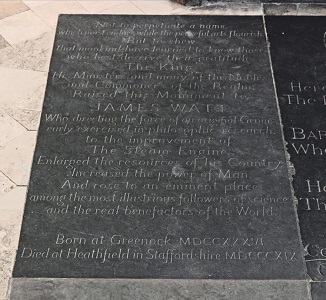 Not to perpetuate a name
which must endure while the peaceful arts flourish
But to shew
that mankind have learnt to know those
who best deserve their gratitude
The King
His Ministers and many of the Nobles
and Commoners of the Realm
Raised this Monument to
JAMES WATT
Who directing the force of an original Genius
early exercised in philosophic research
to the improvements of
The Steam Engine
Enlarged the resources of his Country
Increased the power of Man
And rose to an eminent place
among the most illustrious followers of science
and the real benefactors of the World
Born at Greenock MDCCXXXVI
Died at Heathfield in Staffordshire MDCCCXIX